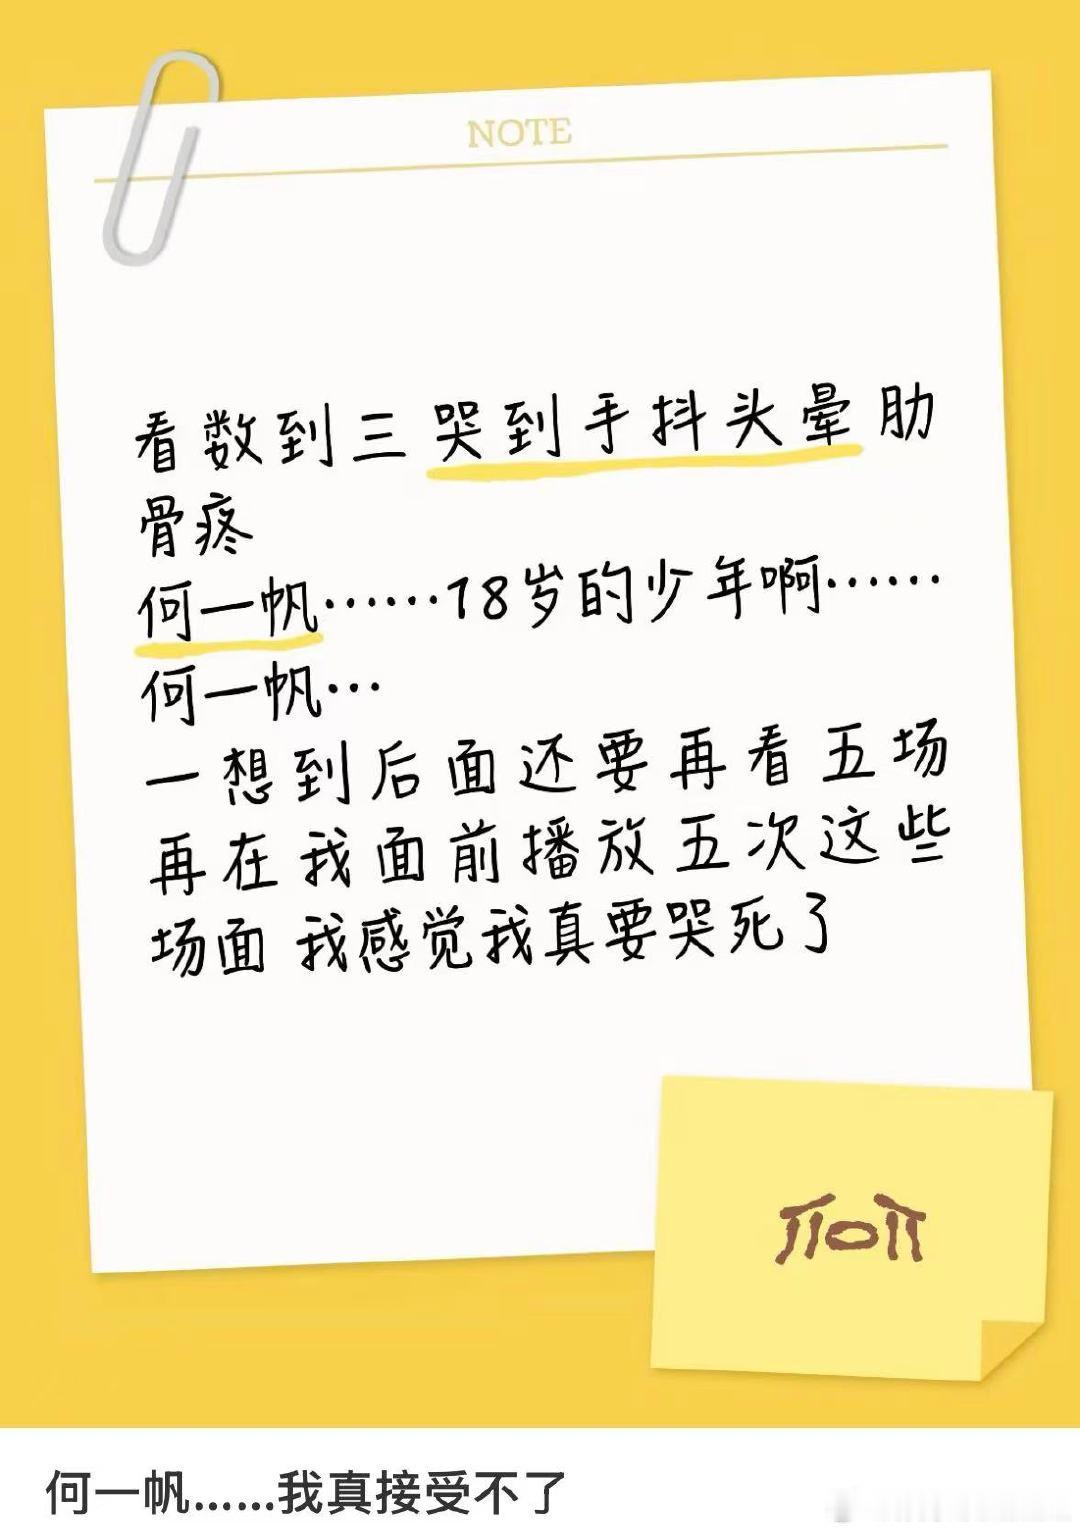 NOTE
看数到三哭到手抖头晕肋
骨疼
何一帆……18岁的少年啊……
何一帆…
一想到后面还要再看五场
再在我面前播放五次这些
场面 我感觉我真要哭死了
何一帆……我真接受不了